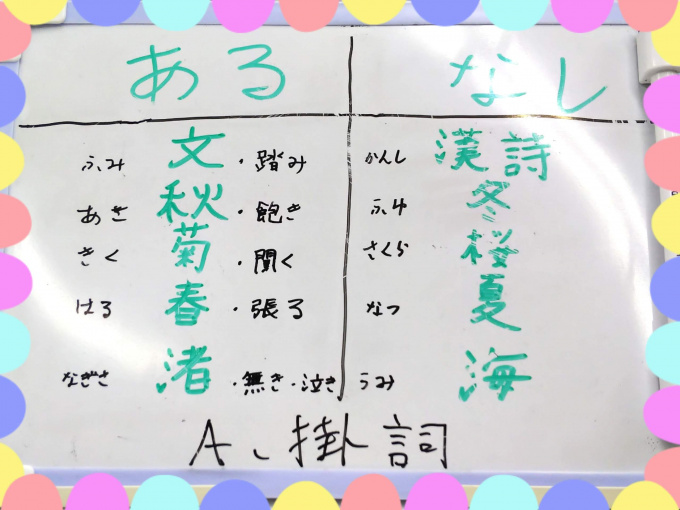 ある なし
ふみ 文・踏み かんし 漢詩
あき 秋・飽き ふゆ 冬
きく 菊・聞く さくら 桜
はる 春・張る なつ 夏
なぎさ 渚・無き・泣き うみ 海
A、掛詞